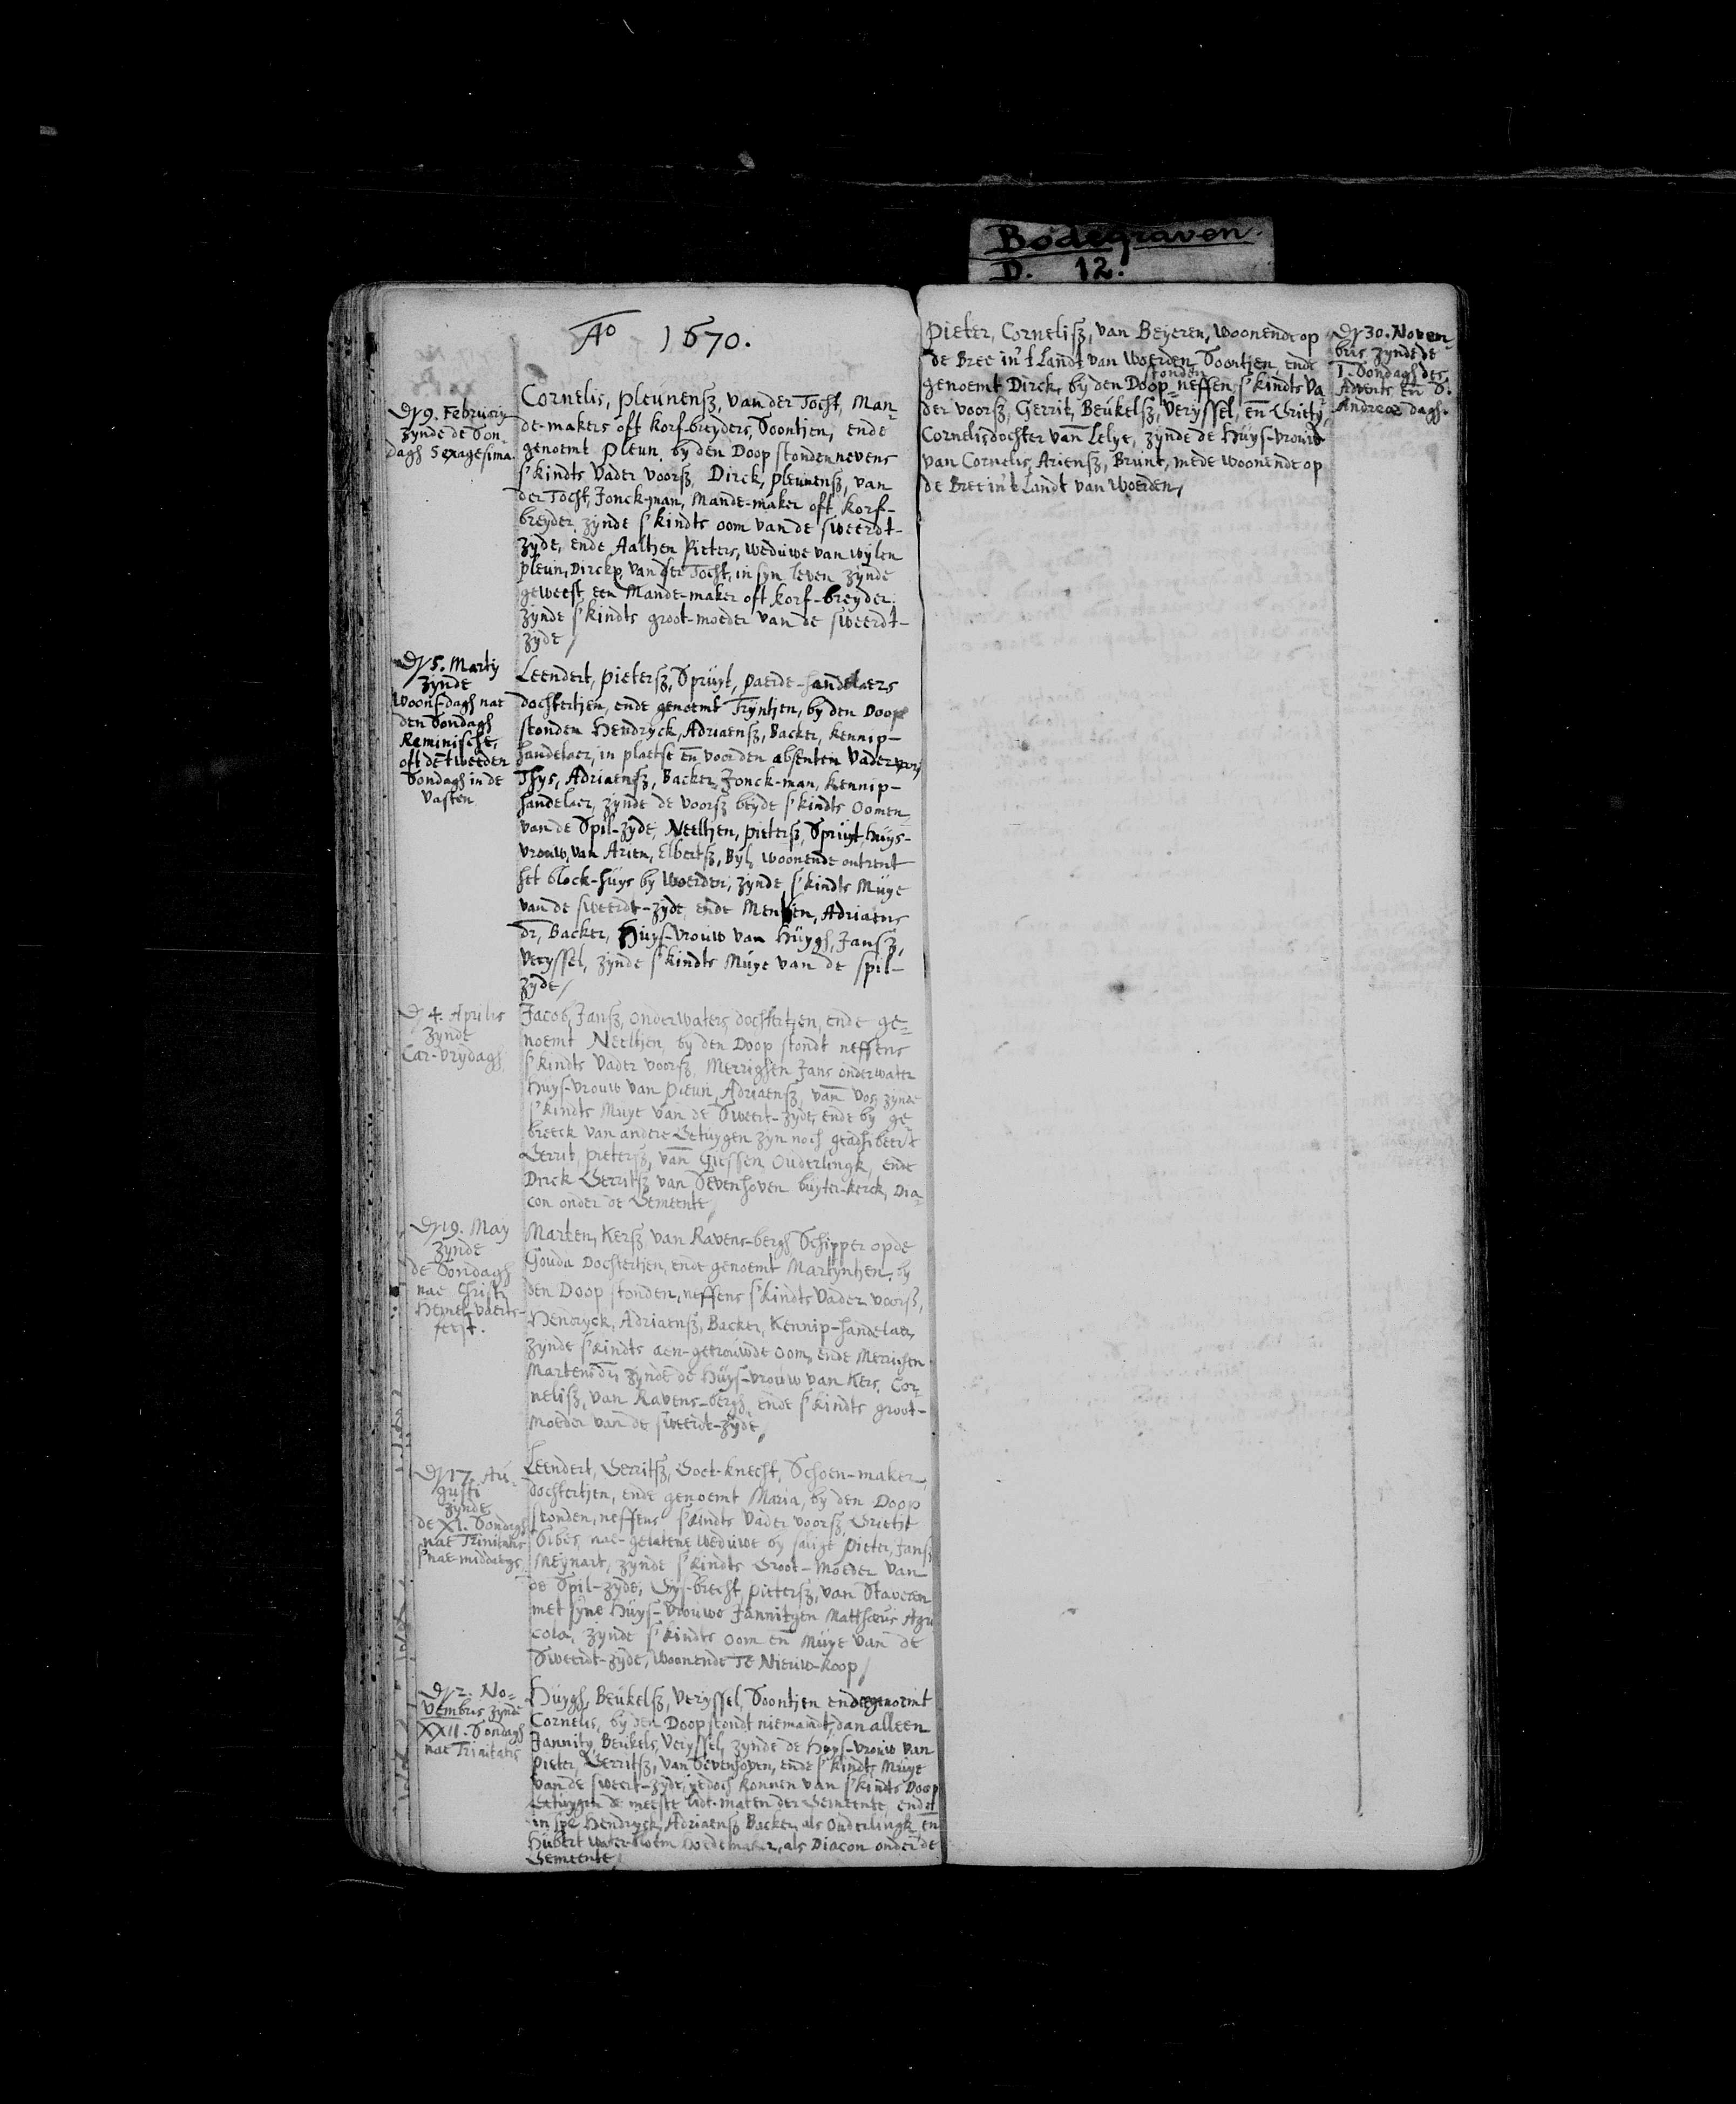 Bodegraven.
D. 12.
Ao 1670.
Dẏ 9. Februarij
zÿnde de Son-
dagh Sexagesima.
Cornelis, pleunensz, van der Tocht, Man-
de-makers oft korf-breyders, Soontjen, ende
genoemt Pleun, by den Doop stonden nevens
s'kindts Vader voorsz, Dirck, pleunensz, van
der Tocht, Jonck-man, Mande-maker oft korf-
breyder, zynde s'kindts oom van de sweerdt-
zyde, ende Aaltjen Pieters, weduwe van wylen
pleun, Dircksz, van der Tocht, in syn leven zynde
geweest een Mande-maker oft korf-breyder,
zynde s'kindts groot-moeder van de sweerdt-
zyde /
Dẏ 5. Martij
zynde
Woonsdagh nae
den Sondagh
Reminiscere,
oft de tweeden
Sondagh in de
Vasten
Leendert, pietersz, Spruyt, paerde-handelaers
dochtertjen, ende genoemt Tryntjen, by den Doop
stonden Hendryck, Adriaensz, Backer, kennip-
handelaer, in plaetse en voor den absenten Vader voorsz
Thys, Adriaensz, Backer, Jonck-man, kennip-
handelaer, zynde de voorsz beyde s'kindts Oomen
van de Spil-zyde, Neeltjen, pietersz, Spruyt huys-
vrouw, van Arien, Elbertsz, Byl, woonende ontrent
het block-huys by Woerden, zynde s'kindts Muye
van de sweerdt-zyde, ende Mentjen, Adriaens
dr, Backer, Huys-vrouw van Huygh, Jansz,
Veryssel, zynde s'kindts Muye van de spil-
zyde /
Dẏ 4. Aprilis
zynde
Car-vrydagh
Jacob, Jansz, onderwaters, dochtertjen, ende ge-
noemt Neeltjen, by den Doop stondt neffens
s'kindts Vader voorsz, Merrighen Jans onderwater
Huys-vrouw van Pleun, Adriaensz, van Vos, zynde
s'kindts Muye van de Sweert-zyde, ende by ge
breeck van andere Getuygen zyn noch geadhibeert
Gerrit, pietersz, van Giessen, Ouderlingk, ende
Dirck Gerritsz van Sevenhoven buyter-kerck, Dia-
con onder de Gemeente /
Dẏ 19. May
zynde
de Sondagh
nae Christi
Hemel-vaerts-
feest.
Marten, Kersz van Ravens-bergh Schipper op de
Gouda Dochtertjen, ende genoemt Martyntjen, by
den Doop stonden, neffens s'kindts Vader voorsz,
Hendryck, Adriaensz, Backer, Kennip-handelaer,
zynde s'kindts aen-getrouwde oom, ende Merrighen
Martensdr, zynde de Huys-vrouw van Kers, Cor-
nelisz, van Ravens-bergh, ende s'kindts groot-
moeder van de sweerdt-zyde /
Dẏ 17. Au-
gusti
zynde
de XI. Sondagh
nae Trinitatis
s'nae-middaegs
Leendert, Gerritsz, Goet-knecht, Schoen-maker,
dochtertjen, ende genoemt Maria, by den Doop
stonden, neffens s'kindts Vader voorsz, Grietie
nae-gelatene Weduwe by salige Pieter, Jansz
Meynart, zynde s'kindts Groot-Moeder van
de Spil-zyde, Gys-brecht, pietersz, van Staveren
met syne Huys-vrouwe Jannitgen Matthaeus Agri
cola, zynde s'kindts oom en Muye van de
Sweerdt-zyde, woonende Te Nieuw-koop /
Dẏ 2. No-
vembris zynde
XXII. Sondagh
nae Trinitatis
Huygh, Beukelsz, Veryssel, Soontjen ende genoemt
Cornelis, by den Doop stondt niemandt, dan alleen
Jannity Beukels, Veryssel, zynde de Huys-vrouw van
Pieter, Gerritsz, van Sevenhoven, ende s'kindts Muye
van de sweert-zyde, jedoch konnen van s'kindts Doop
Getuygen de meeste Lidt-maten der Gemeente, ende
in spe Hendryck, Adriaensz Backer, als Ouderlingk, en
Hubert Water-bloem hoedemaker, als Diacon onder de
Gemeente /
Pieter, Cornelisz, van Beyeren, woonende op
de Bree in't Landt van Woerden, Soontjen, ende
genoemt Dirck, by den Doop stonden neffen s'kindts Va
der voorsz, Gerrit, Beukelsz, Veryssel, en Griety,
Cornelisdochter van Lelye, zynde de Huys-vrouw
van Cornelis, Ariensz, Brunt, mede woonende op
de Bree in't Landt van Woerden /
Dẏ 30. Novem-
bris zynde de
I. Sondagh des
Advents en S.
Andreae dagh.